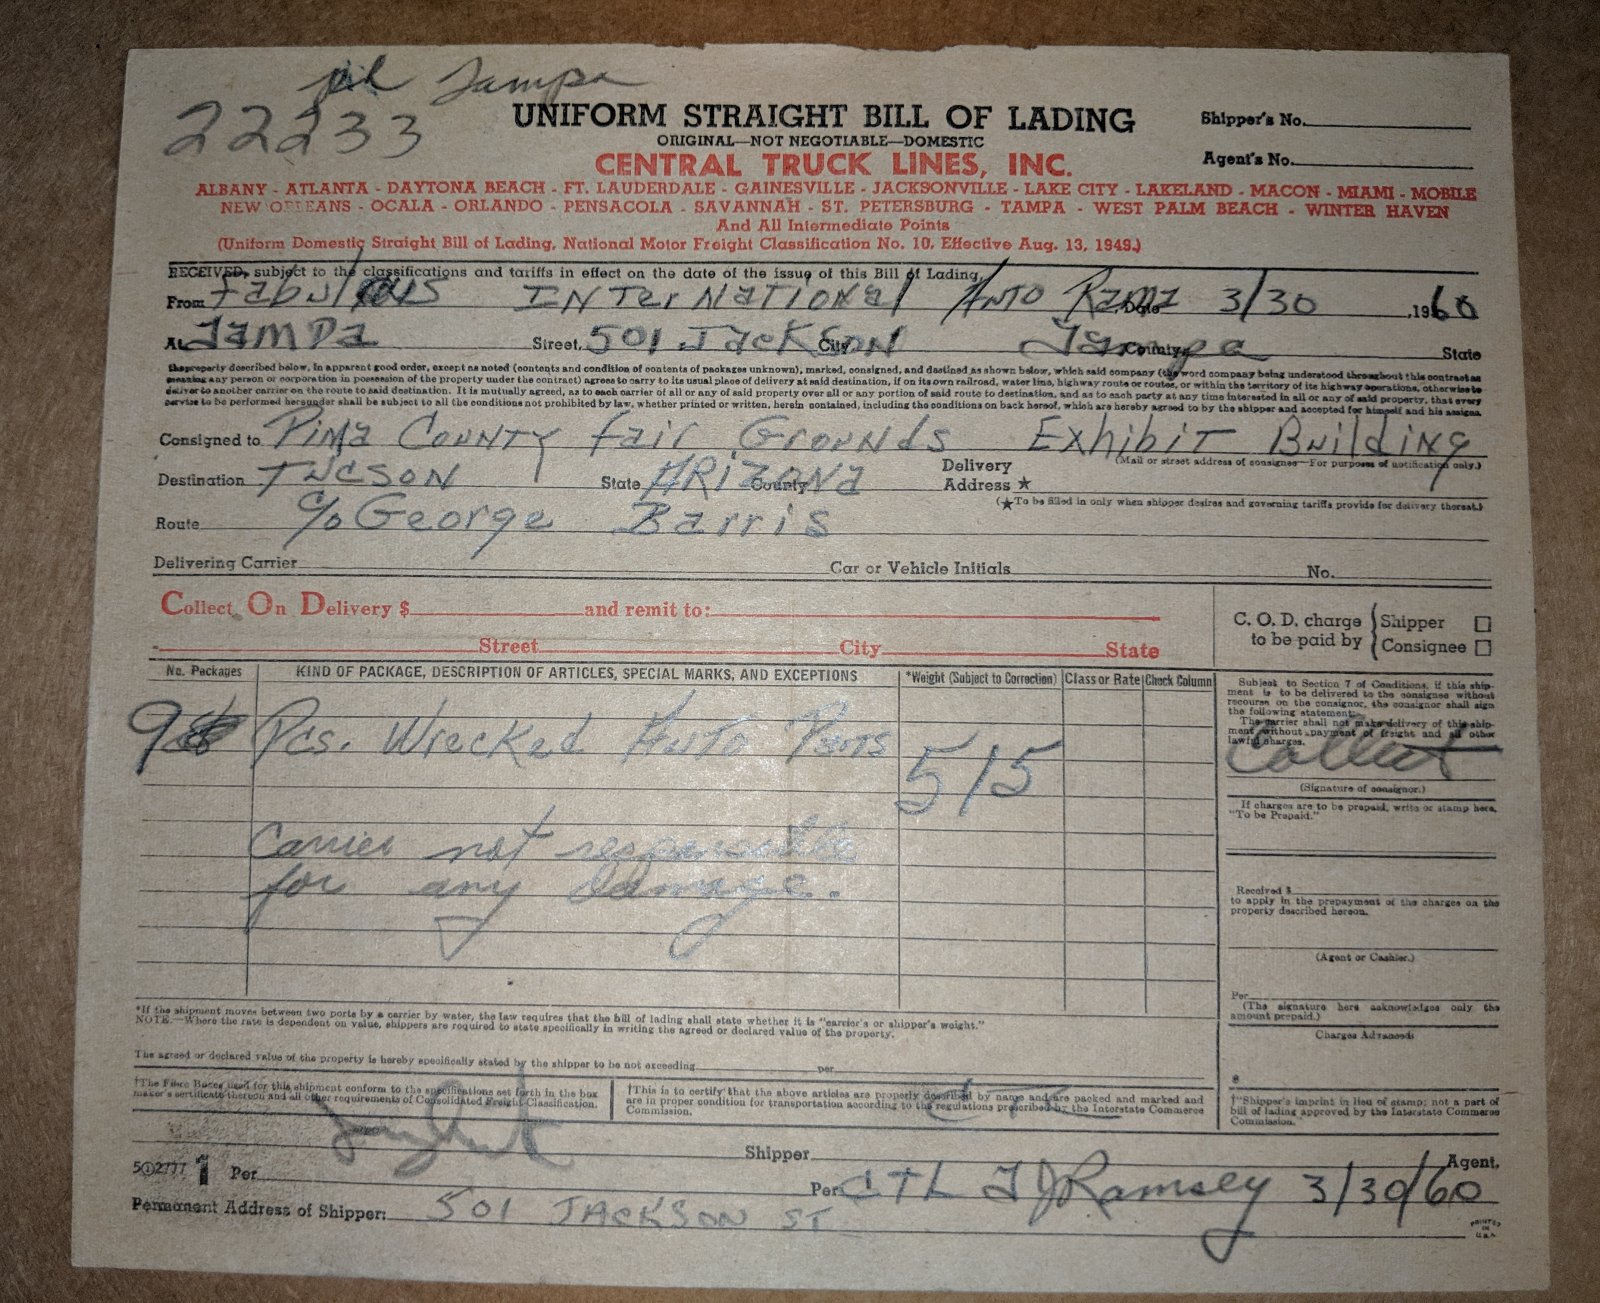 Tampa
22233
UNIFORM STRAIGHT BILL OF LADING
ORIGINAL—NOT NEGOTIABLE—DOMESTIC
Shipper's No.
Agent's No.
CENTRAL TRUCK LINES, INC.
ALBANY - ATLANTA - DAYTONA BEACH - FT. LAUDERDALE - GAINESVILLE - JACKSONVILLE - LAKE CITY - LAKELAND - MACON - MIAMI - MOBILE
NEW ORLEANS - OCALA - ORLANDO - PENSACOLA - SAVANNAH - ST. PETERSBURG - TAMPA - WEST PALM BEACH - WINTER HAVEN
And All Intermediate Points
(Uniform Domestic Straight Bill of Lading, National Motor Freight Classification No. 10, Effective Aug. 13, 1949.)
RECEIVED, subject to the classifications and tariffs in effect on the date of the issue of this Bill of Lading,
From Fabulous INTerNATIONal AUTO Rama Date 3/30 1960
At TAMPA Street, 501 Jackson City Tampa County State
the property described below, in apparent good order, except as noted (contents and condition of contents of packages unknown), marked, consigned, and destined as shown below, which said company (the word company being understood throughout this contract as
meaning any person or corporation in possession of the property under the contract) agrees to carry to its usual place of delivery at said destination, if on its own railroad, water line, highway route or routes, or within the territory of its highway operations, otherwise to
deliver to another carrier on the route to said destination. It is mutually agreed, as to each carrier of all or any of said property over all or any portion of said route to destination, and as to each party at any time interested in all or any of said property, that every
service to be performed hereunder shall be subject to all the conditions not prohibited by law, whether printed or written, herein contained, including the conditions on back hereof, which are hereby agreed to by the shipper and accepted for himself and his assigns.
Consigned to Pima County fair Grounds Exhibit Building
(Mail or street address of consignee—For purposes of notification only.)
Destination TUCSON State ARIZONA County Delivery Address ★
(★To be filled in only when shipper desires and governing tariffs provide for delivery thereat.)
Route c/o George Barris
Delivering Carrier Car or Vehicle Initials No.
Collect On Delivery $ and remit to:
Street City State
C. O. D. charge to be paid by Shipper Consignee
No. Packages KIND OF PACKAGE, DESCRIPTION OF ARTICLES, SPECIAL MARKS, AND EXCEPTIONS *Weight (Subject to Correction) Class or Rate Check Column
9 Pcs. Wrecked Auto Parts 515
Carrier not responsible
for any damage.
Subject to Section 7 of Conditions, if this ship-
ment is to be delivered to the consignee without
recourse on the consignor, the consignor shall sign
the following statement:
The carrier shall not make delivery of this ship-
ment without payment of freight and all other
lawful charges.
Collect
(Signature of consignor.)
If charges are to be prepaid, write or stamp here,
"To be Prepaid."
Received $
to apply in the prepayment of the charges on the
property described hereon.
(Agent or Cashier.)
Per
(The signature here acknowledges only the
amount prepaid.)
Charges Advanced:
$
†"Shipper's imprint in lieu of stamp; not a part of
bill of lading approved by the Interstate Commerce
Commission.
*If the shipment moves between two ports by a carrier by water, the law requires that the bill of lading shall state whether it is "carrier's or shipper's weight."
NOTE.—Where the rate is dependent on value, shippers are required to state specifically in writing the agreed or declared value of the property.
The agreed or declared value of the property is hereby specifically stated by the shipper to be not exceeding per
†The Fibre Boxes used for this shipment conform to the specifications set forth in the box
maker's certificate thereon and all other requirements of Consolidated Freight Classification.
†This is to certify that the above articles are properly described by name and are packed and marked and
are in proper condition for transportation according to the regulations prescribed by the Interstate Commerce
Commission.
Shipper Agent.
1 Per Per CTL TJ Ramsey 3/30/60
Permanent Address of Shipper: 501 JACKSON ST
PRINTED
IN
U.S.A.